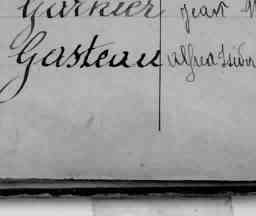 Garnier Jean
Gasteau Alfred Isidor